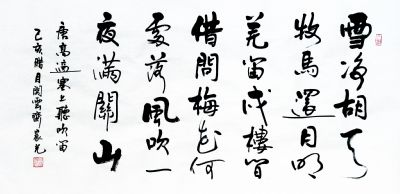 雪净胡天
牧馬還月明
羌笛戍樓間
借問梅花何
處落風吹一
夜滿關山
唐高適塞上聽吹笛
己亥腊月